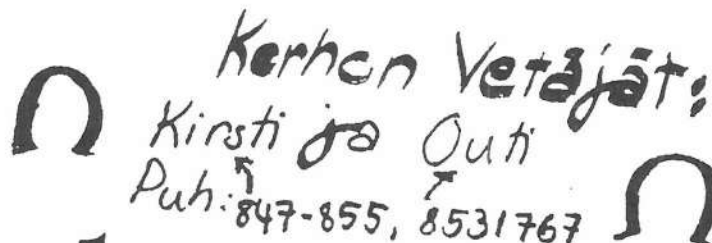 Kerhon Vetäjät:
Kirsti ja Outi
Puh: 847-855, 8531767